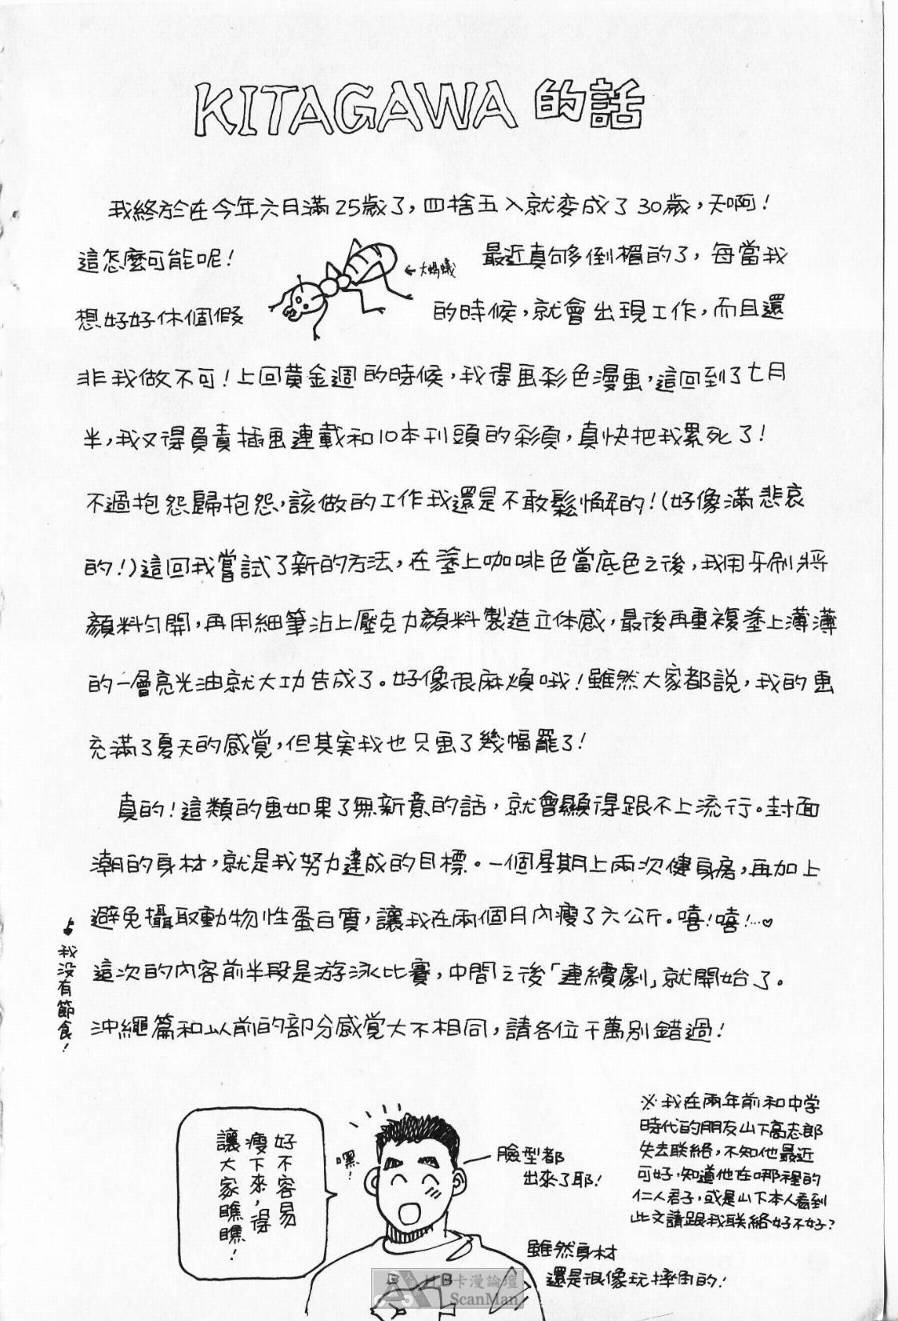 KITAGAWA的話
我終於在今年六月滿25歲了，四捨五入就變成了30歲，天啊！
這怎麼可能呢！
←大螞蟻
最近真夠多倒楣的了，每當我
想好好休個假
的時候，就會出現工作，而且還
非我做不可！上回黃金週的時候，我得畫彩色漫畫，這回到了七月
半，我又得負責插畫連載和10本刊頭的彩頁，真快把我累死了！
不過抱怨歸抱怨，該做的工作我還是不敢鬆懈的！（好像滿悲哀
的！）這回我嘗試了新的方法，在塗上咖啡色當底色之後，我用牙刷將
顏料勻開，再用細筆沾上壓克力顏料製造立体感，最後再重複塗上薄薄
的一層亮光油就大功告成了。好像很麻煩哦！雖然大家都說，我的畫
充滿了夏天的感覚，但其実我也只畫了幾幅罷了！
真的！這類的畫如果了無新意的話，就會顯得跟不上流行。封面
潮的身材，就是我努力達成的目標。一個星期上兩次健身房，再加上
避免攝取動物性蛋白質，讓我在兩個月內瘦了六公斤。嘻！嘻！…♥
♪我没有節食！
這次的內容前半段是游泳比賽，中間之後「連續劇」就開始了。
沖繩篇和以前的部分感覚大不相同，請各位千萬別錯過！
好不容易
瘦下來，得
讓大家瞧瞧！
嘿！
臉型都
出來了耶！
雖然身材
還是很像玩摔角的！
※我在兩年前和中学
時代的朋友山下高志郎
失去联絡，不知他最近
可好，知道他在哪裡的
仁人君子，或是山下本人看到
此文請跟我联絡好不好？
HB卡漫論壇
ScanMan